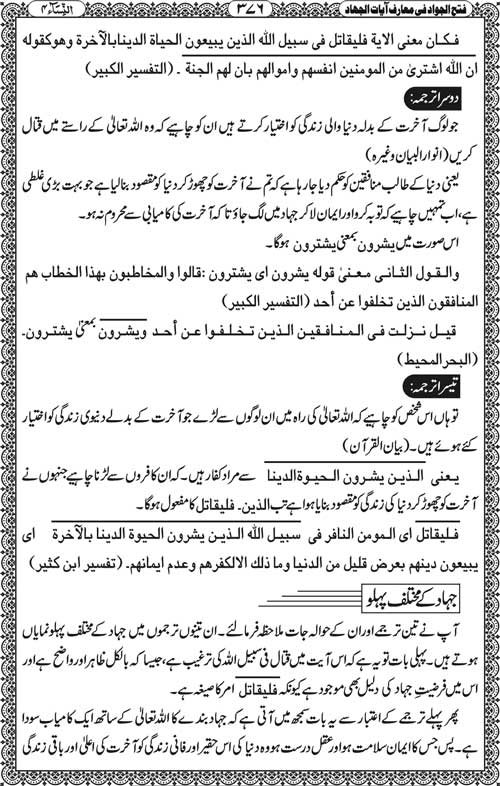 فتح الجواد فی معارف آیات الجہاد ۳۷۶ النِّسَآء ۴
فـکـان معنی الایة فلیقاتل فی سبیل اللّٰه الذین یبیعون الحیاة الدینا بالآخرة وهوکقوله
ان اللّٰه اشتریٰ من المومنین انفسهم واموالهم بان لهم الجنة ۔ (التفسیر الکبیر)
دوسرا ترجمہ:
جو لوگ آخرت کے بدلہ دنیا والی زندگی کو اختیار کرتے ہیں ان کو چاہیے کہ وہ اللہ تعالیٰ کے راستے میں قتال
کریں (انوار البیان وغیرہ)
یعنی دنیا کے طالب منافقین کو حکم دیا جا رہا ہے کہ تم نے آخرت کو چھوڑ کر دنیا کو مقصود بنا لیا ہے جو بہت بڑی غلطی
ہے، اب تمہیں چاہیے کہ توبہ کرو اور ایمان لا کر جہاد میں لگ جاؤ تا کہ آخرت کی کامیابی سے محروم نہ ہو۔
اس صورت میں یشرون بمعنی یشترون ہوگا۔
والـقـول الثـانـی مـعـنیٰ قوله یشرون ای یشترون :قالوا والمخاطبون بهذا الخطاب هم
المنافقون الذین تخلفوا عن أحد (التفسیر الکبیر)
قیـل نـزلـت فی الـمـنـافـقین الذیـن تـخـلـفـوا عـن أحـد ویشـرون بمعنیٰ یشترون۔
(البحر المحیط)
تیسرا ترجمہ:
تو ہاں اس شخص کو چاہیے کہ اللہ تعالیٰ کی راہ میں ان لوگوں سے لڑے جو آخرت کے بدلے دنیوی زندگی کو اختیار
کئے ہوئے ہیں۔ (بیان القرآن)
یـعـنی الـذیـن یشرون الحیـوة الدینا سے مراد کفار ہیں۔ کہ ان کافروں سے لڑنا چاہیے جنہوں نے
آخرت کو چھوڑ کر دنیا کی زندگی کو مقصود بنایا ہوا ہے تب الذین۔ فلیقاتل کا مفعول ہوگا۔
فـلیقاتل ای الـمومن النافر فی سبیل اللّٰه الـذیـن یشرون الحیوة الدینا بالآخرة ای
یبیعون دینهم بعرض قلیل من الدنیا وما ذلك الالکفرهم وعدم ایمانهم۔ (تفسیر ابن کثیر)
جہاد کے مختلف پہلو
آپ نے تین ترجمے اور ان کے حوالہ جات ملاحظہ فرما لئے۔ ان تینوں ترجموں میں جہاد کے مختلف پہلو نمایاں
ہوتے ہیں۔ پہلی بات تو یہ ہے کہ اس آیت میں قتال فی سبیل اللہ کی ترغیب ہے، جیسا کہ بالکل ظاہر اور واضح ہے اور
اس میں فرضیتِ جہاد کی دلیل بھی موجود ہے کیونکہ فلیقاتل امر کا صیغہ ہے۔
پھر پہلے ترجمے کے اعتبار سے یہ بات سمجھ میں آتی ہے کہ جہاد بندے کا اللہ تعالیٰ کے ساتھ ایک کامیاب سودا
ہے۔ پس جس کا ایمان سلامت ہو اور عقل درست ہو وہ دنیا کی اس حقیر اور فانی زندگی کو آخرت کی اعلیٰ اور باقی زندگی